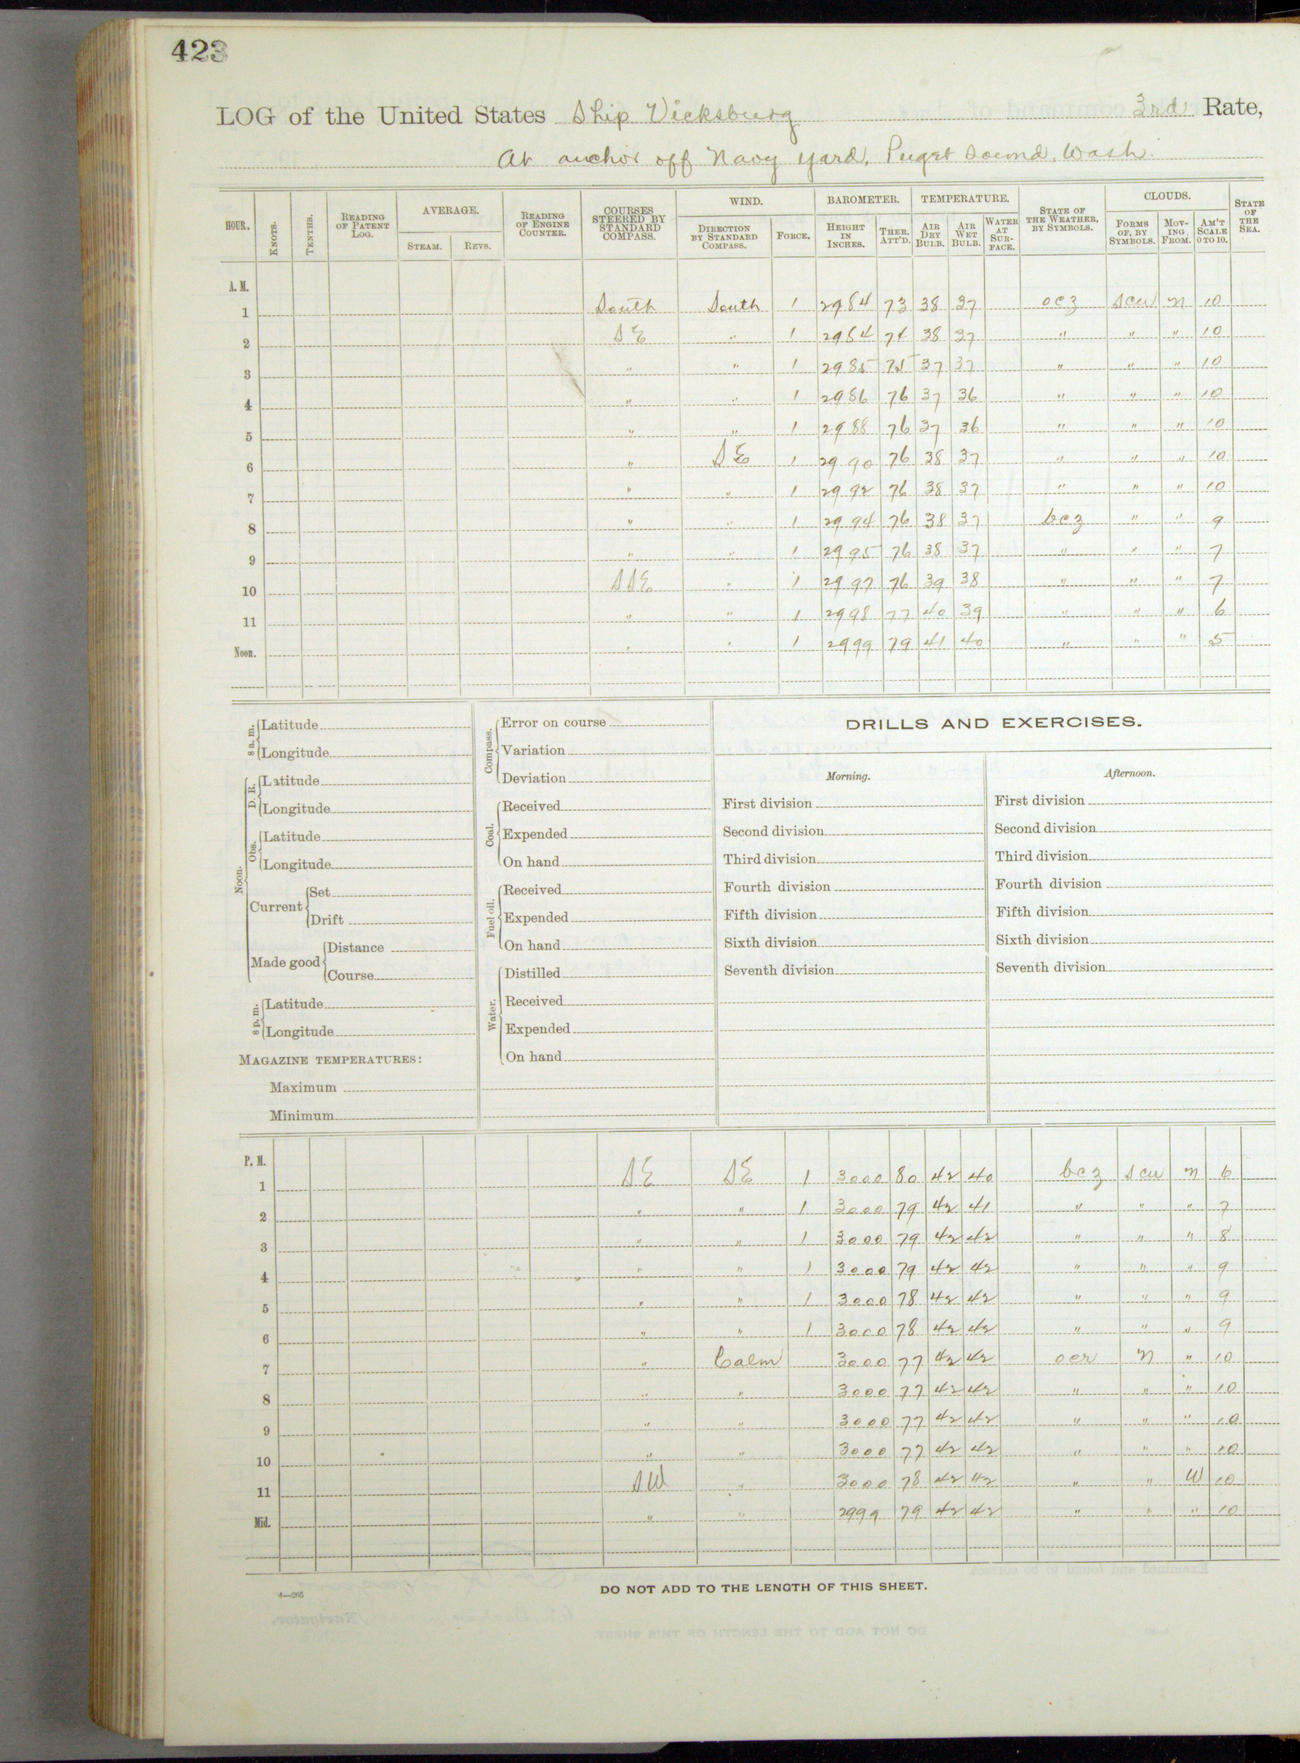 423
LOG of the United States Ship Vicksburg 3rd Rate,
At anchor off Navy Yard, Puget Sound, Wash.
HOUR. KNOTS. TENTHS. READING OF PATENT LOG. AVERAGE. STEAM. REVS. READING OF ENGINE COUNTER. COURSES STEERED BY STANDARD COMPASS. WIND. DIRECTION BY STANDARD COMPASS. FORCE. BAROMETER. HEIGHT IN INCHES. THER. ATT'D. TEMPERATURE. AIR DRY BULB. AIR WET BULB. WATER AT SURFACE. STATE OF THE WEATHER, BY SYMBOLS. CLOUDS. FORMS OF, BY SYMBOLS. MOVING FROM. AM'T SCALE 0 TO 10. STATE OF THE SEA.
A. M.
1 South South 1 2984 73 38 37 ocz scu n 10
2 SE " 1 2984 74 38 37 " " " 10
3 " " 1 2985 75 37 37 " " " 10
4 " " 1 2986 76 37 36 " " " 10
5 " " 1 2988 76 37 36 " " " 10
6 " SE 1 2990 76 38 37 " " " 10
7 " " 1 2992 76 38 37 " " " 10
8 " " 1 2994 76 38 37 bcz " " 9
9 " " 1 2995 76 38 37 " " " 7
10 SSE " 1 2997 76 39 38 " " " 7
11 " " 1 2998 77 40 39 " " " 6
Noon. " " 1 2999 79 41 40 " " " 5
8 a. m. Latitude
Longitude
Noon. D. R. Latitude
Longitude
Obs. Latitude
Longitude
Current Set
Drift
Made good Distance
Course
8 p. m. Latitude
Longitude
MAGAZINE TEMPERATURES:
Maximum
Minimum
Compass. Error on course
Variation
Deviation
Coal. Received
Expended
On hand
Fuel oil. Received
Expended
On hand
Water. Distilled
Received
Expended
On hand
DRILLS AND EXERCISES.
Morning. Afternoon.
First division First division
Second division Second division
Third division Third division
Fourth division Fourth division
Fifth division Fifth division
Sixth division Sixth division
Seventh division Seventh division
P. M.
1 SE SE 1 3000 80 42 40 bcz scu n 6
2 " " 1 3000 79 42 41 " " " 7
3 " " 1 3000 79 42 42 " " " 8
4 " " 1 3000 79 42 42 " " " 9
5 " " 1 3000 78 42 42 " " " 9
6 " " 1 3000 78 42 42 " " " 9
7 " Calm 3000 77 42 42 ocr n " 10
8 " " 3000 77 42 42 " " " 10
9 " " 3000 77 42 42 " " " 10
10 " " 3000 77 42 42 " " " 10
11 SW " 3000 78 42 42 " " W 10
Mid. " " 2999 79 42 42 " " " 10
DO NOT ADD TO THE LENGTH OF THIS SHEET.